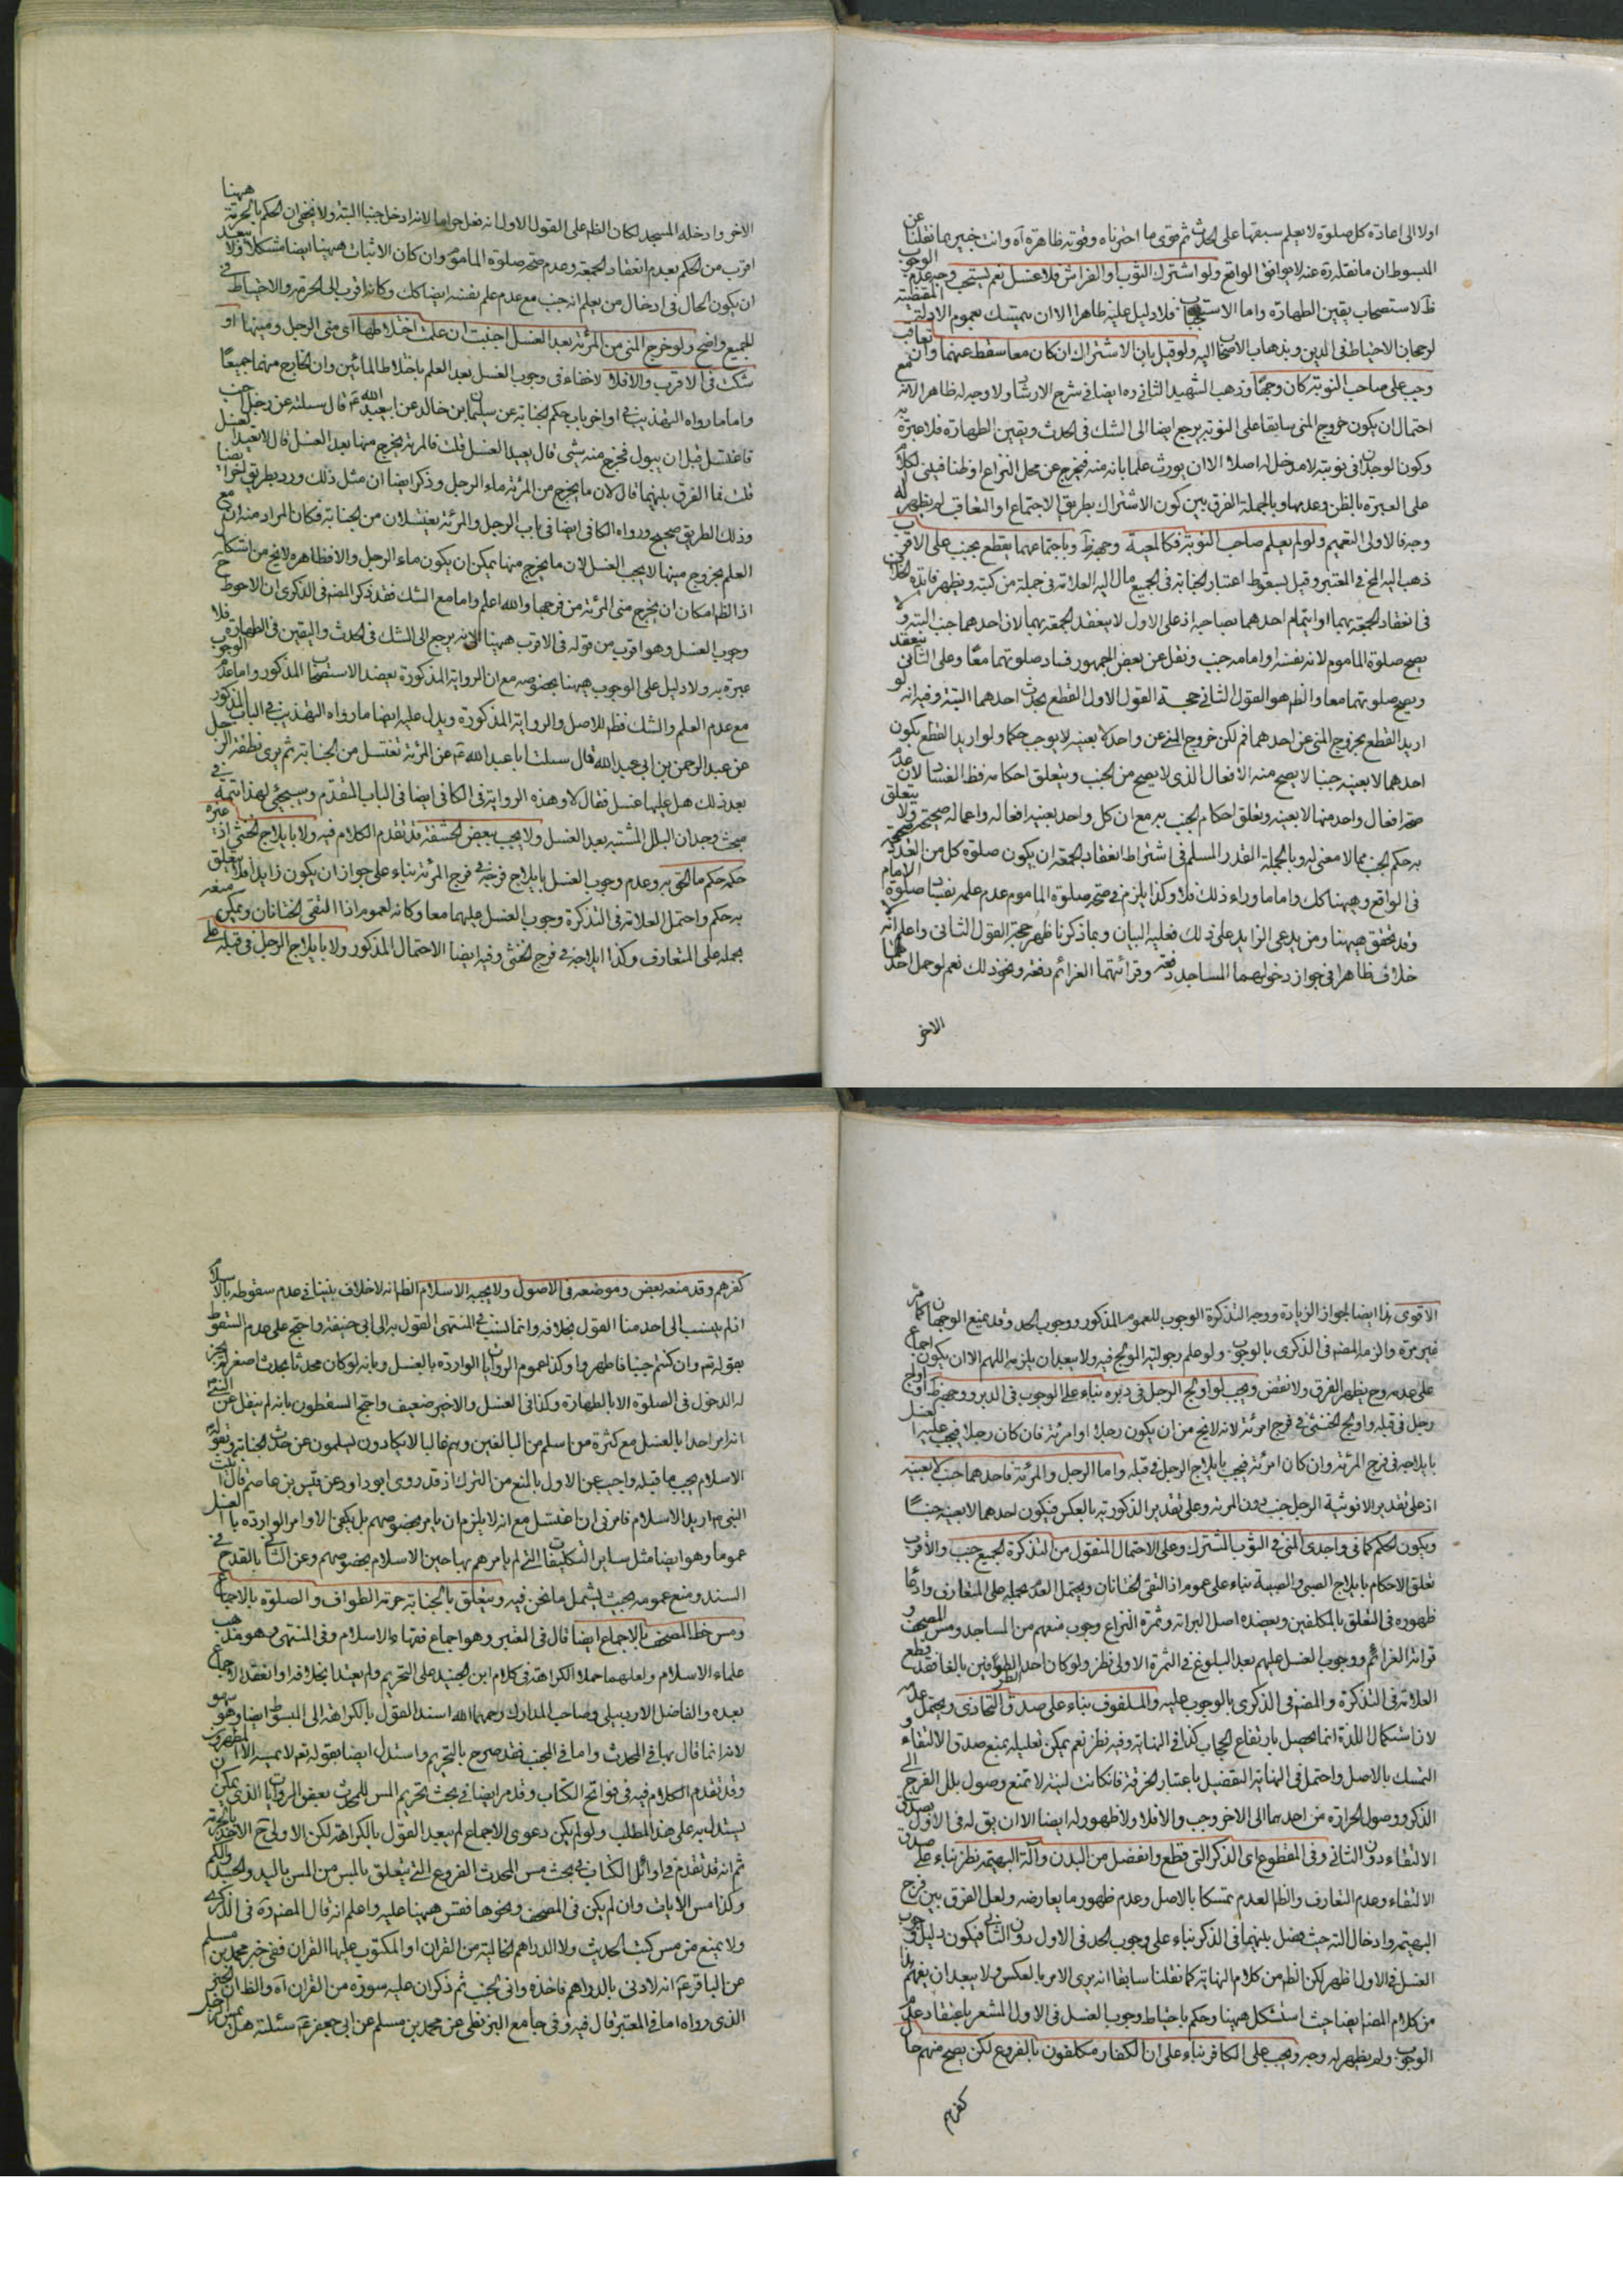 اولا الى اعادة كل صلوة لا يعلم سبقها على الحدث ثم قوى ما اخترناه وقوته ظاهرة آه وانت خبير بما نقلنا عن
المبسوط ان ما نقله ره عنه لا يوافق الواقع ولو اشترك الثوب او الفراش فلا غسل نعم يستحب وجه عدم الوجوب
ظ لاستصحاب يقين الطهارة واما الاستحباب فلا دليل عليه ظاهرا الا ان يتمسك بعموم الادلة المقتضية
لرجحان الاحتياط فى الدين وبذهاب الاصحاب اليه ولو قيل بان الاشتراك ان كان معا سقط عنهما وان تعاقب
وجب على صاحب النوبة كان وجها وذهب الشهيد الثانى ره ايضا فى شرح الارشاد ولا وجه له ظاهر الانه مع
احتمال ان يكون خروج المنى سابقا على النوبة يرجع ايضا الى الشك فى الحدث ويقين الطهارة فلا عبرة به
وكون الوجدان فى نوبته لا مدخل له اصلا الا ان يورث علما بانه منه فيخرج عن محل النزاع او ظنا فيبنى الكلام
على العبرة بالظن وعدمها وبالجملة الفرق بين كون الاشتراك بطريق الاجتماع او التعاقب لم يظهر له
وجه فالاولى التعميم ولو لم يعلم صاحب النوبة فكالمعية وجهه ظ وباجتماعهما يقطع بجنب على الاقرب
ذهب اليه المح فى المعتبر وقيل بسقوط اعتبار الجنابة فى الجميع مال اليه العلامة فى جملة من كتبه ويظهر فايدة الخلاف
فى انعقاد الجمعة بهما او ايتمام احدهما بصاحبه اذ على الاول لا ينعقد الجمعة بهما لان احدهما جنب البتة ولا
يصح صلوة الماموم لانه نفسه او امامه جنب ونقل عن بعض الجمهور فساد صلوتهما معا وعلى الثانى ينعقد
ويصح صلوتهما معا والظ هو القول الثانى حجة القول الاول القطع بحدث احدهما البتة وفيه انه لو
اريد القطع بخروج المنى عن احدهما فم لكن خروج المنى عن واحد لا بعينه لا يوجب حكما ولو اريد القطع بكون
احدهما لا بعينه جنبا لا يصح منه الافعال الذى لا يصح من الجنب ويتعلق احكامه فظ الفساد لان عدم
صحة افعال واحد منهما لا بعينه وتعلق احكام الجنب به مع ان كل واحد بعينه افعاله واعماله صحيحة ولا يتعلق
به حكم الجنب مما لا معنى له وبالجملة القدر المسلم فى اشتراط انعقاد الجمعة ان يكون صلوة كل من العدد صحيحة
فى الواقع وههنا كك واما ما وراء ذلك فلا وكذا يلزم فى صحة صلوة الماموم عدم علمه بفساد صلوة الامام
وقد تحقق ههنا ومن يدعى الزايد على ذلك فعليه البيان وبما ذكرنا ظهر حجة القول الثانى واعلم انه لا
خلاف ظاهرا فى جواز دخولهما المساجد دفعة وقرائتهما العزائم دفعة ونحو ذلك نعم لو حمل احدهما
الاخر
الاخر وادخله المسجد لكان الظ على القول الاول انه فعل حراما لانه ادخل جنبا البتة ولا يخفى ان الحكم بالحرمة ههنا
اقرب من الحكم بعدم انعقاد الجمعة وعدم صحة صلوة الماموم وان كان الاثبات ههنا ايضا مشكلا ولا يبعد
ان يكون الحال فى ادخال من يعلم انه جنب مع عدم علم نفسه ايضا كك وكانه اقرب الى الحرمة والاحتياط فى
الجميع واضح ولو خرج المنى من المرئة بعد الغسل اجنبت ان علمت اختلاطها اى منى الرجل ومنيها او
شكت فى الاقرب والا فلا لا خفاء فى وجوب الغسل بعد العلم باختلاط المائين وان الخارج منهما جميعا
واما ما رواه التهذيب فى اواخر باب حكم الجنابة عن سليمان بن خالد عن ابى عبد الله ع قال سئلته عن رجل اجنب
فاغتسل قبل ان يبول فخرج منه شئ قال يعيد الغسل قلت فالمرئة يخرج منها بعد الغسل قال لا تعيد الغسل
قلت فما الفرق بينهما قال لان ما يخرج من المرئة ماء الرجل وذكر ايضا ان مثل ذلك ورد بطريق اخر ايضا
وذلك الطريق صحيح ورواه الكافى ايضا فى باب الرجل والمرئة يغتسلان من الجنابة فكان المراد منه ان مع
العلم بخروج منيها لا يجب الغسل لان ما يخرج منها يمكن ان يكون ماء الرجل والا فظاهره لا يخ من اشكال
اذ الظ امكان ان يخرج منى المرئة من فرجها والله اعلم واما مع الشك فقد ذكر المصنف فى الذكرى ان الاحوط ح
وجوب الغسل وهو اقرب من قوله فى الاقرب ههنا لانه يرجع الى الشك فى الحدث واليقين فى الطهارة فلا
عبرة به ولا دليل على الوجوب ههنا بخصوصه مع ان الرواية المذكورة يعضد الاستصحاب المذكور واما عدم الوجوب
مع عدم العلم والشك فظ للاصل والرواية المذكورة ويدل عليه ايضا ما رواه التهذيب فى الباب المذكور
عن عبد الرحمن بن ابى عبد الله قال سئلت ابا عبد الله ع عن المرئة تغتسل من الجنابة ثم يرى نطفة الرجل
بعد ذلك هل عليها غسل فقال لا وهذه الرواية فى الكافى ايضا فى الباب المتقدم وسيجئ لهذا تتمة فى
مبحث وجدان البلل المشتبه بعد الغسل ولا يجب ببعض الحشفة قد تقدم الكلام فيه ولا بايلاج الخنثى اذ
حكمه حكم ما التحق به وعدم وجوب الغسل بايلاج فرجه فى فرج المرئة بناء على جواز ان يكون زايدا فلا يتعلق
به حكم واحتمل العلامة فى التذكرة وجوب الغسل عليهما معا وكانه لعموم اذا التقى الختانان ويمكن منعه
بحمله على المتعارف وكذا ايلاجه فى فرج الخنثى وفيه ايضا الاحتمال المذكور ولا بايلاج الرجل فى قبله على
الاقوى لذا ايضا لجواز الزيادة ووجه التذكرة الوجوب للعموم المذكور ووجوب الحد وقد يمنع الوجهان كما مر
غير مرة والزم المصنف فى الذكرى بالوجوب ولو علم رجولية المولج فيه ولا يبعد ان يلزمه اللهم الا ان يكون اجماع
على عدمه وح يظهر الفرق ولا نقض ويجب لو اولج الرجل فى دبره بناء على الوجوب فى الدبر ووجهه ظ او اولج
رجل فى قبله واولج الخنثى فى فرج امرئة لانه لا يخ من ان يكون رجلا او امرئة فان كان رجلا فيجب عليه الغسل
بايلاجه فى فرج المرئة وان كان امرئة فيجب بايلاج الرجل فى قبله واما الرجل والمرئة فاحدهما جنب لا بعينه
اذ على تقدير الانوثية الرجل جنب دون المرئة وعلى تقدير الذكورية بالعكس فيكون احدهما لا بعينه جنبا
ويكون الحكم كما فى واجدى المنى فى الثوب المشترك وعلى الاحتمال المنقول من التذكرة الجميع جنب والاقرب
تعلق الاحكام بايلاج الصبى والصبية بناء على عموم اذا التقى الختانان ويحتمل العدم بحمله على المتعارف وادعاء
ظهوره فى التعلق بالمكلفين ويعضده اصل البرائة وثمرة النزاع وجوب منعهم من المساجد ومس المصحف و
قرائة العزائم ووجوب الغسل عليهم بعد البلوغ فى الثمرة الاولى نظر ولو كان احد الطرفين بالغا فقد قطع
العلامة فى التذكرة والمصنف فى الذكرى بالوجوب عليه والملفوف بناء على صدق التحاذى ويحتمل عدمه
لان استكمال اللذة انما يحصل بارتفاع الحجاب كذا فى النهاية وفيه نظر نعم يمكن تعليله بمنع صدق الالتقاء و
التمسك بالاصل واحتمل فى النهاية التفصيل باعتبار الخرقة فان كانت لينة لا تمنع وصول بلل الفرج الى
الذكر ووصول الحرارة من احدهما الى الاخر وجب والا فلا ولا ظهور له ايضا الا ان يق له فى الاول يصدق
الالتقاء دون الثانى وفى المقطوع اى الذكر التى قطع وانفصل من البدن وآلة البهيمة نظر بناء على صدق
الالتقاء وعدم التعارف والظ العدم تمسكا بالاصل وعدم ظهور ما يعارضه ولعل الفرق بين فرج
البهيمة وادخال الته حيث فصل بينهما فى الذكر بناء على وجوب الحد فى الاول دون الثانى فيكون دليل وجوب
الغسل فى الاول اظهر لكن الظ من كلام النهاية كما نقلنا سابقا انه يرى الامر بالعكس ولا يبعد ان يفهم هذا
من كلام المصنف ايضا حيث استشكل ههنا وحكم باحتياط وجوب الغسل فى الاول المشعر باعتقاد عدم
الوجوب ولم يظهر له وجه ويجب على الكافر بناء على ان الكفار مكلفون بالفروع لكن يصح منهم حال
كفرهم
كفرهم وقد منعه بعض وموضعه فى الاصول ولا يجبه الاسلام الظ انه لا خلاف بيننا فى عدم سقوطه بالاسلام
اذ لم ينسب الى احد منا القول بخلافه وانما نسب فى المنتهى القول به الى ابى حنيفة واحتج على عدم السقوط
بقوله تع وان كنتم جنبا فاطهروا وكذا عموم الروايات الواردة بالغسل وبانه لو كان محدثا بحدث اصغر لم يجز
له الدخول فى الصلوة الا بالطهارة وكذا فى الغسل والاخير ضعيف واحتج المسقطون بانه لم ينقل عن النبى ص
انه امر احدا بالغسل مع كثرة من اسلم من البالغين وهم غالبا لا يكادون يسلمون عن حدث الجنابة وبقوله
الاسلام يجب ما قبله واجيب عن الاول بالمنع من الترك اذ قد روى ابو داود عن قيس بن عاصم قال اتيت
النبى ص اريد الاسلام فامرنى ان اغتسل مع انه لا يلزم ان يامر بخصوصهم بل يكفى الاوامر الواردة بالغسل
عموما وهو ايضا مثل ساير التكليفات التى لم يامرهم بها حين الاسلام بخصوصهم وعن الثانى بالقدح فى
السند ومنع عمومه بحيث يشمل ما نحن فيه ويتعلق بالجنابة حرمة الطواف والصلوة بالاجماع
ومس خط المصحف بالاجماع ايضا قال فى المعتبر وهو اجماع فقهاء الاسلام وفى المنتهى وهو مذهب
علماء الاسلام ولعلهما حملا الكراهة فى كلام ابن الجنيد على التحريم ولم يعتدا بخلافه او انعقد الاجماع
بعده والفاضل الاردبيلى وصاحب المدارك رحمهما الله اسند القول بالكراهة الى المبسوط ايضا وهو سهو
لانه انما قال بها فى المحدث واما فى الجنب فقد صرح بالتحريم واستدل ايضا بقوله تع لا يمسه الا المطهرون
وقد تقدم الكلام فيه فى فواتح الكتاب وقد مر ايضا فى بحث تحريم المس للمحدث بعض الروايات الذى يمكن ان
يستدل به على هذا المطلب ولو لم يكن دعوى الاجماع لم يبعد القول بالكراهة لكن الاولى ح الاخذ بالحرمة
ثم انه قد تقدم فى اوائل الكتاب فى بحث مس المحدث الفروع التى يتعلق بالمس من المس باليد والجسد والكم
وكذا مس الايات وان لم يكن فى المصحف ونحوها فقس ههنا عليه واعلم انه قال المصنف ره فى الذكرى
ولا يمنع من مس كتب الحديث ولا الدراهم الخالية من القران او المكتوب عليها القران ففى خبر محمد بن مسلم
عن الباقر ع انه لادنى بالدراهم فاخذه وانى لجنب ثم ذكر ان عليه سورة من القران آه والظ ان الخبر
الذى رواه اما فى المعتبر قال فيه وفى جامع البزنطى عن محمد بن مسلم عن ابى جعفر ع سئلته هل يمس الرجل